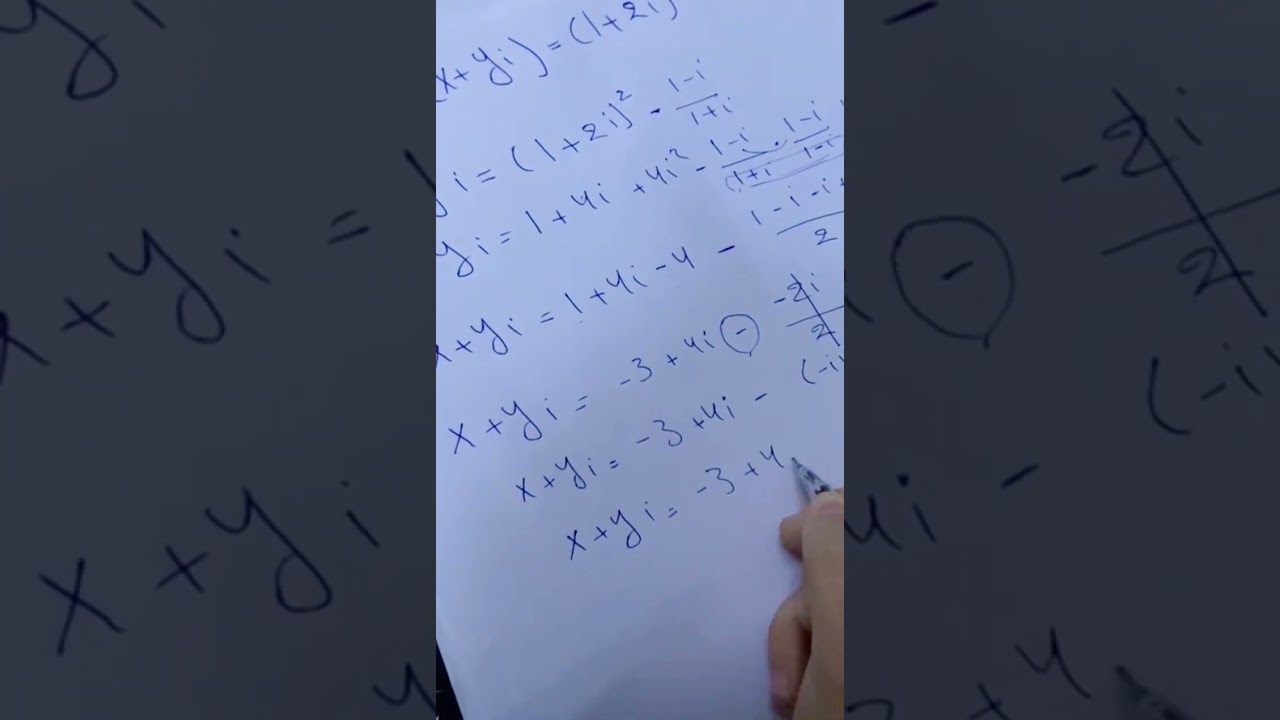 x+yi)=(1+2i)
yi = (1+2i)² - 1-i/1+i
yi = 1+4i+4i² - 1-i/1+i · 1-i/1-i
x+yi = 1+4i-4 - 1-i-i+/2
x+yi = -3+4i - -2i/2
x+yi = -3+4i - (-i)
x+yi = -3+4